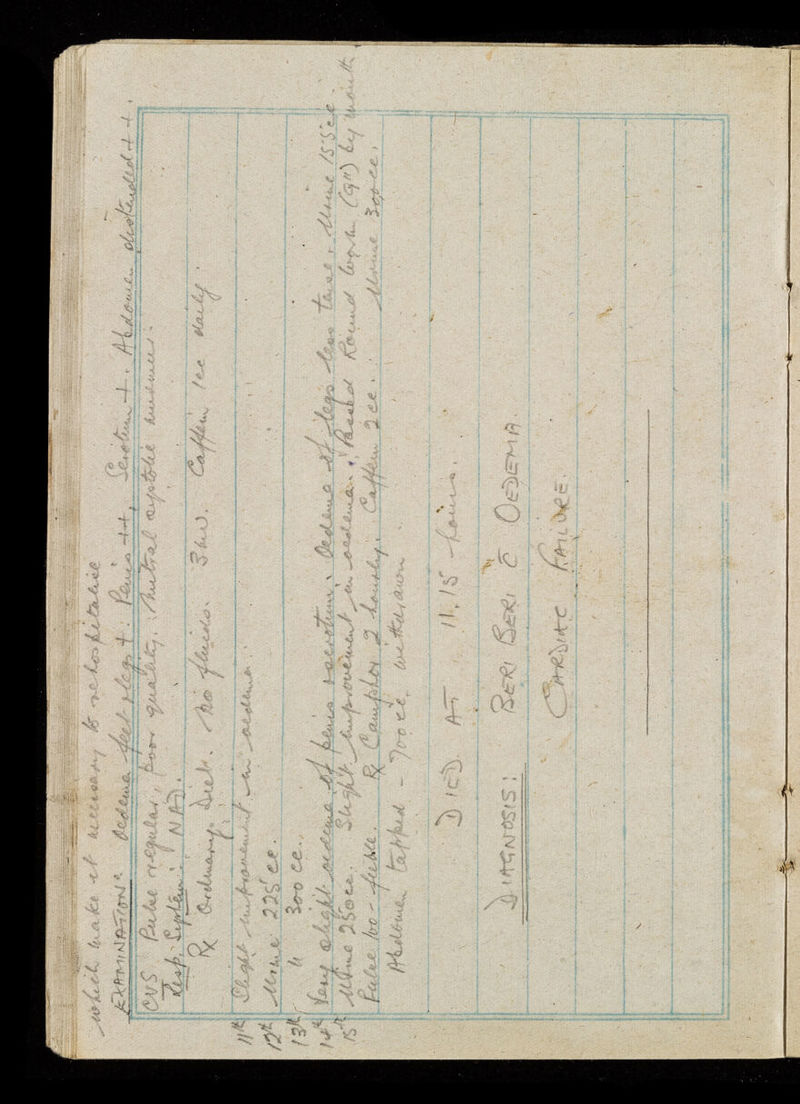 which make it necessary to rehospitalise
EXAMINATION: Oedema feet & legs +. Penis ++, Scrotum +. Abdomen distended ++.
CVS Pulse regular, poor quality. Mitral systolic murmur.
Resp. System: NAD.
Rx Ordinary Diet. No fluids. Caffein 1cc daily.
11th Slight improvement in oedema.
12th Urine 225 cc.
13th " 300 cc.
14th Very slight oedema of penis & scrotum. Oedema of legs less tense. Urine 155cc.
15th Urine 250cc. Slight improvement in oedema. Passed Round worm (9") by mouth
Pulse 100 - feeble. Rx Camphor 2 hourly. Caffein 2cc. Urine 300cc.
Abdomen tapped - 700cc. withdrawn
DIED AT 11.15 hours.
DIAGNOSIS: BERI BERI c̄ OEDEMA.
CARDIAC FAILURE.